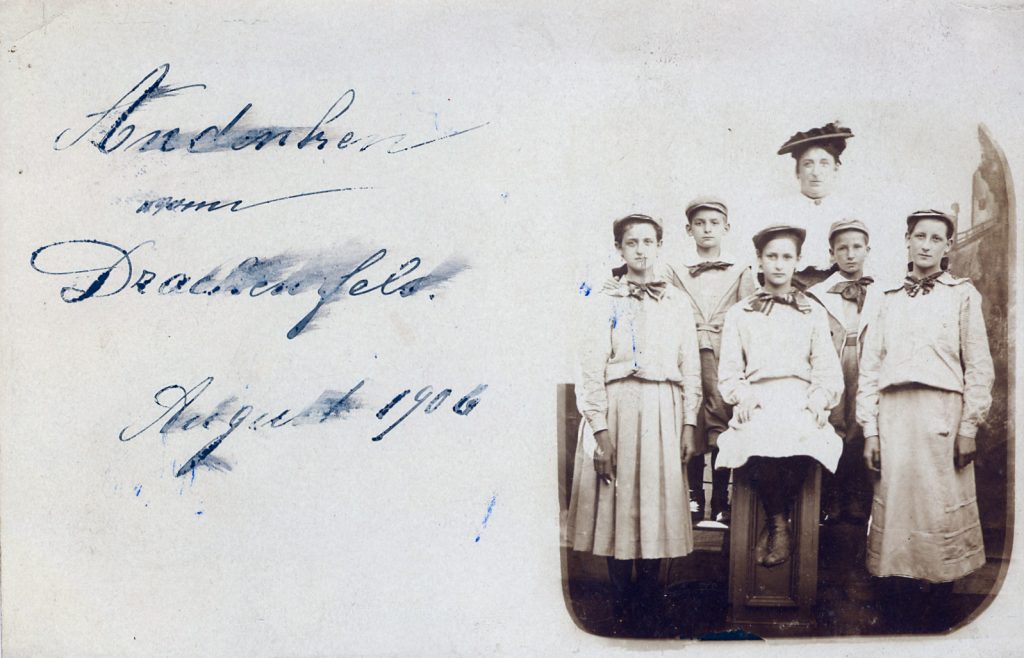 Andenken
vom
Drachenfels.
August 1906